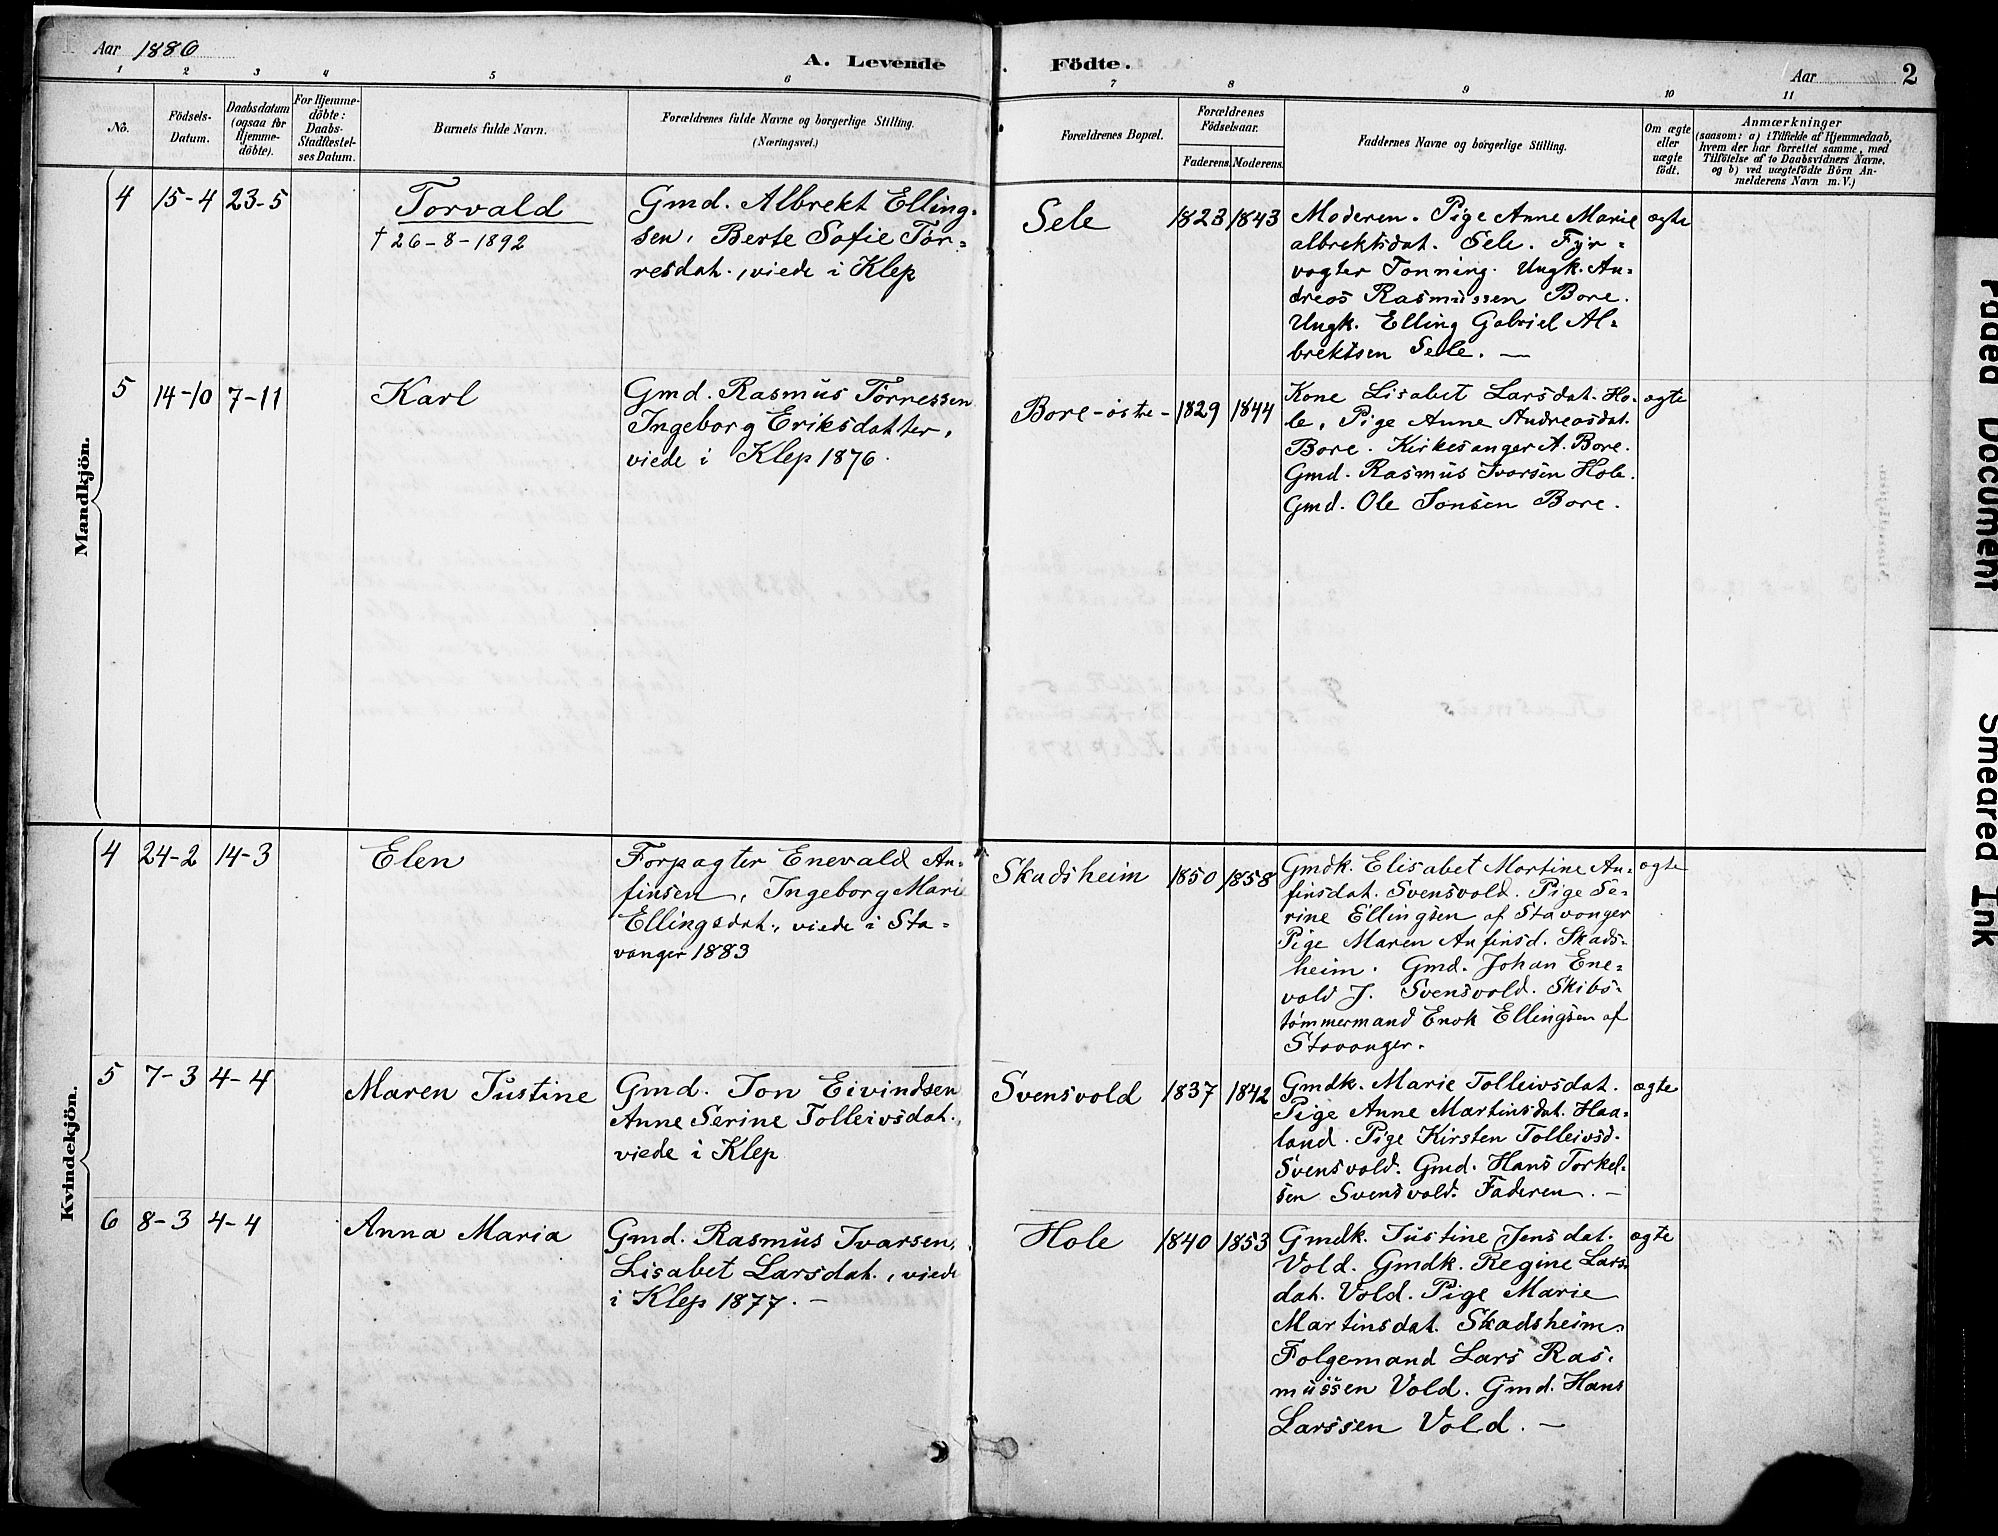 Aar 1886
A. Levende Födte.
Aar 2
1 2 3 4 5 6 7 8 9 10 11
No.
Födsels-
Datum.
Daabsdatum
(ogsaa for
Hjemme-
döbte).
For Hjemme-
döbte:
Daabs-
Stadfæstel-
ses Datum.
Barnets fulde Navn.
Forældrenes fulde Navne og borgerlige Stilling.
(Næringsvei.)
Forældrenes Bopæl.
Forældrenes
Födselsaar.
Faderens. Moderens.
Faddernes Navne og borgerlige Stilling.
Om ægte
eller
uægte
födt.
Anmærkninger
(saasom: a) i Tilfælde af Hjemmedaab,
hvem der har forrettet samme, med
Tilföielse af to Daabsvidners Navne,
og b) ved uægtefödte Börn An-
melderens Navn m. V.)
Mandkjön.
4 15-4 23-5
Torvald
† 26-8-1892
Gmd. Albrekt Elling-
sen, Berte Sofie Tør-
resdat., viede i Klep
Sele
1823 1843
Moderen. Pige Anne Marie
albrektsdat. Sele. Fyr-
vogter Tonning. Ungk. An-
dreas Rasmussen Bore.
Ungk. Elling Gabriel Al-
brektsen Sele. —
ægte
5 14-10 7-11
Karl
Gmd. Rasmus Tørressen
Ingeborg Eriksdatter,
viede i Klep 1876.
Bore-østre-
1829 1844
Kone Lisabet Larsdat. Ho-
le, Pige Anne Andreasdat.
Bore. Kirkesanger A. Bore.
Gmd. Rasmus Ivarsen Hole.
Gmd. Ole Jonsen Bore.
ægte
Kvindekjön.
4 24-2 14-3
Elen
Forpagter Enevald An-
finsen, Ingeborg Marie
Ellingsdat., viede i Sta-
vanger 1883
Skadsheim
1850 1858
Gmdk. Elisabet Martine An-
finsdat. Svensvold. Pige Se-
rine Ellingsen af Stavanger
Pige Maren Anfinsd. Skads-
heim. Gmd. Johan Ene-
vold J. Svensvold. Skibs-
tømmermand Enok Ellingsen af
Stavanger.
ægte
5 7-3 4-4
Maren Justine
Gmd. Jon Eivindsen
Anne Serine Tolleivsdat.,
viede i Klep
Svensvold
1837 1842
Gmdk. Marie Tolleivsdat.
Pige Anne Martinsdat. Haa-
land. Pige Kirsten Tolleivsd.
Svensvold. Gmd. Hans Torkel-
sen Svensvold. Faderen. —
ægte
6 8-3 4-4
Anna Maria
Gmd. Rasmus Ivarsen,
Lisabet Larsdat., viede
i Klep 1877. —
Hole
1840 1853
Gmdk. Justine Jensdat.
Vold. Gmdk. Regine Lars-
dat. Vold. Pige Marie
Martinsdat. Skadsheim.
Folgemand Lars Ras-
mussen Vold. Gmd. Hans
Larssen Vold. —
ægte
Faded Document
Smeared Ink